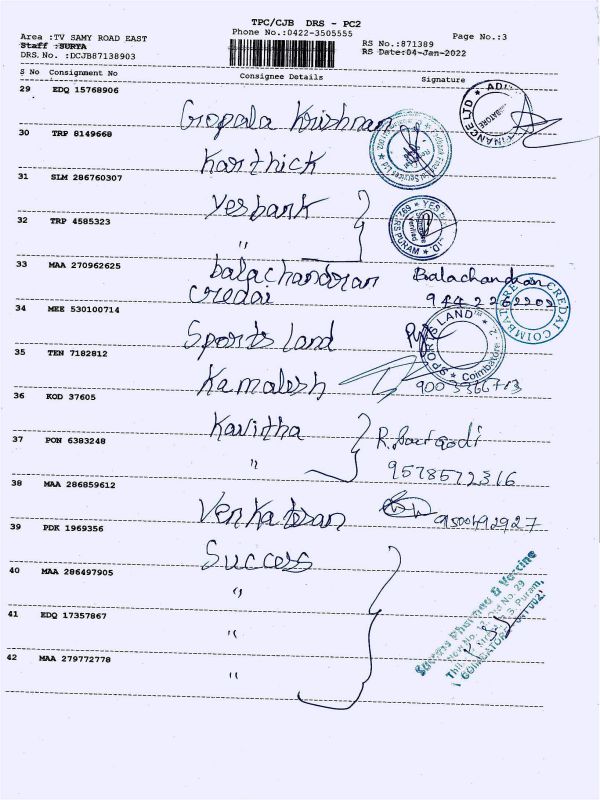 TPC/CJB DRS - PC2
Phone No.:0422-3505555
Page No.:3
Area :TV SAMY ROAD EAST
Staff :SURYA
DRS.No. :DCJB87138903
RS No.:871389
RS Date:04-Jan-2022
S No Consignment No Consignee Details Signature
29 EDQ 15768906
Gopala Krishnan
30 TRP 8149668
Karthick
31 SLM 286760307
Yesbank
32 TRP 4585323
"
33 MAA 270962625
balachandran Balachandran
credai
34 MEE 530100714
Sports land
SPORTS LAND
Coimbatore
CREDAI COIMBATORE
35 TEN 7182812
Kamalesh
36 KOD 37605
Kavitha
37 PON 6383248
"
9578572316
38 MAA 286859612
Venkatesan
39 PDK 1969356
Success
40 MAA 286497905
"
41 EDQ 17357867
"
42 MAA 279772778
"
Success Pharma & Vaccine